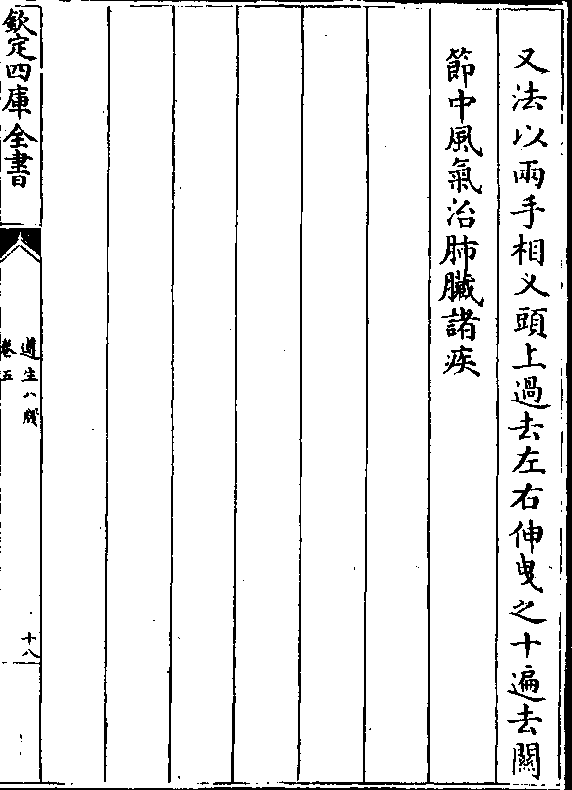 又法以兩手相乂頭上過去左右伸曳之十遍去關
節中風氣治肺臟諸疾
欽定四庫全書
遵生八牋
卷五
十八